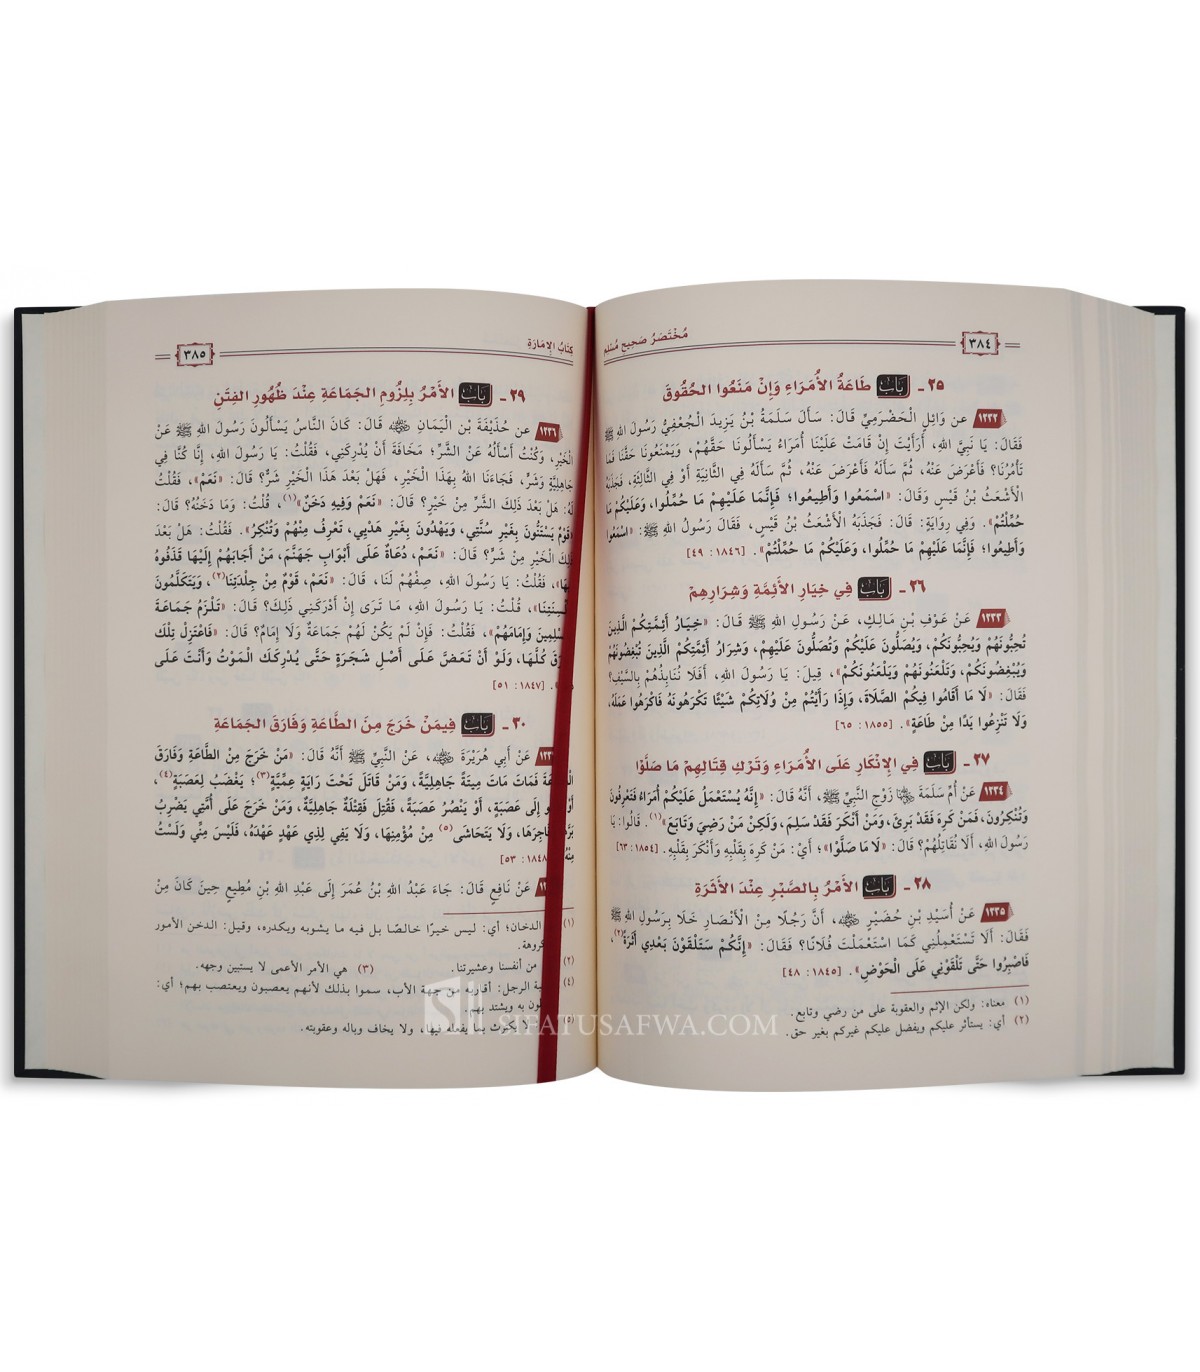 ٣٨٤
مُخْتَصَرُ صَحِيحِ مُسْلِمٍ
٢٥ - بَابٌ طَاعَةُ الأُمَرَاءِ وَإِنْ مَنَعُوا الحُقُوقَ
١٢٣٢ عن وَائِلٍ الْحَضْرَمِيِّ قَالَ: سَأَلَ سَلَمَةُ بْنُ يَزِيدَ الْجُعْفِيُّ رَسُولَ اللهِ ﷺ
فَقَالَ: يَا نَبِيَّ اللهِ، أَرَأَيْتَ إِنْ قَامَتْ عَلَيْنَا أُمَرَاءُ يَسْأَلُونَا حَقَّهُمْ، وَيَمْنَعُونَا حَقَّنَا فَمَا
تَأْمُرُنَا؟ فَأَعْرَضَ عَنْهُ، ثُمَّ سَأَلَهُ فَأَعْرَضَ عَنْهُ، ثُمَّ سَأَلَهُ فِي الثَّانِيَةِ أَوْ فِي الثَّالِثَةِ، فَجَذَبَهُ
الْأَشْعَثُ بْنُ قَيْسٍ وَقَالَ: «اسْمَعُوا وَأَطِيعُوا؛ فَإِنَّمَا عَلَيْهِمْ مَا حُمِّلُوا، وَعَلَيْكُمْ مَا
حُمِّلْتُمْ». وَفِي رِوَايَةٍ: قَالَ: فَجَذَبَهُ الْأَشْعَثُ بْنُ قَيْسٍ، فَقَالَ رَسُولُ اللهِ ﷺ: «اسْمَعُوا
وَأَطِيعُوا؛ فَإِنَّمَا عَلَيْهِمْ مَا حُمِّلُوا، وَعَلَيْكُمْ مَا حُمِّلْتُمْ». [١٨٤٦: ٤٩]
٢٦ - بَابٌ فِي خِيَارِ الأَئِمَّةِ وَشِرَارِهِمْ
١٢٣٣ عَنْ عَوْفِ بْنِ مَالِكٍ، عَنْ رَسُولِ اللهِ ﷺ قَالَ: «خِيَارُ أَئِمَّتِكُمْ الَّذِينَ
تُحِبُّونَهُمْ وَيُحِبُّونَكُمْ، وَيُصَلُّونَ عَلَيْكُمْ وَتُصَلُّونَ عَلَيْهِمْ، وَشِرَارُ أَئِمَّتِكُمْ الَّذِينَ تُبْغِضُونَهُمْ
وَيُبْغِضُونَكُمْ، وَتَلْعَنُونَهُمْ وَيَلْعَنُونَكُمْ»، قِيلَ: يَا رَسُولَ اللهِ، أَفَلَا نُنَابِذُهُمْ بِالسَّيْفِ؟
فَقَالَ: «لَا مَا أَقَامُوا فِيكُمْ الصَّلَاةَ، وَإِذَا رَأَيْتُمْ مِنْ وُلَاتِكُمْ شَيْئًا تَكْرَهُونَهُ فَاكْرَهُوا عَمَلَهُ،
وَلَا تَنْزِعُوا يَدًا مِنْ طَاعَةٍ». [١٨٥٥: ٦٥]
٢٧ - بَابٌ فِي الإِنْكَارِ عَلَى الأُمَرَاءِ وَتَرْكِ قِتَالِهِمْ مَا صَلَّوْا
١٢٣٤ عَنْ أُمِّ سَلَمَةَ زَوْجِ النَّبِيِّ ﷺ، أَنَّهُ قَالَ: «إِنَّهُ يُسْتَعْمَلُ عَلَيْكُمْ أُمَرَاءُ فَتَعْرِفُونَ
وَتُنْكِرُونَ، فَمَنْ كَرِهَ فَقَدْ بَرِئَ، وَمَنْ أَنْكَرَ فَقَدْ سَلِمَ، وَلَكِنْ مَنْ رَضِيَ وَتَابَعَ»(١). قَالُوا: يَا
رَسُولَ اللهِ، أَلَا نُقَاتِلُهُمْ؟ قَالَ: «لَا مَا صَلَّوْا»؛ أَيْ: مَنْ كَرِهَ بِقَلْبِهِ وَأَنْكَرَ بِقَلْبِهِ. [١٨٥٤: ٦٣]
٢٨ - بَابٌ الأَمْرُ بِالصَّبْرِ عِنْدَ الأَثَرَةِ
١٢٣٥ عَنْ أُسَيْدِ بْنِ حُضَيْرٍ، أَنَّ رَجُلًا مِنْ الْأَنْصَارِ خَلَا بِرَسُولِ اللهِ ﷺ
فَقَالَ: أَلَا تَسْتَعْمِلُنِي كَمَا اسْتَعْمَلْتَ فُلَانًا؟ فَقَالَ: «إِنَّكُمْ سَتَلْقَوْنَ بَعْدِي أَثَرَةً(٢)،
فَاصْبِرُوا حَتَّى تَلْقَوْنِي عَلَى الْحَوْضِ». [١٨٤٥: ٤٨]
(١) معناه: ولكن الإثم والعقوبة على من رضي وتابع.
(٢) أي: يستأثر عليكم ويفضل عليكم غيركم بغير حق.
كِتَابُ الإِمَارَةِ
٣٨٥
٢٩ - بَابٌ الأَمْرُ بِلُزُومِ الجَمَاعَةِ عِنْدَ ظُهُورِ الفِتَنِ
١٢٣٦ عن حُذَيْفَةَ بْنِ الْيَمَانِ قَالَ: كَانَ النَّاسُ يَسْأَلُونَ رَسُولَ اللهِ ﷺ عَنْ
الْخَيْرِ، وَكُنْتُ أَسْأَلُهُ عَنْ الشَّرِّ؛ مَخَافَةَ أَنْ يُدْرِكَنِي، فَقُلْتُ: يَا رَسُولَ اللهِ، إِنَّا كُنَّا فِي
جَاهِلِيَّةٍ وَشَرٍّ، فَجَاءَنَا اللهُ بِهَذَا الْخَيْرِ، فَهَلْ بَعْدَ هَذَا الْخَيْرِ شَرٌّ؟ قَالَ: «نَعَمْ»، فَقُلْتُ
لَهُ: هَلْ بَعْدَ ذَلِكَ الشَّرِّ مِنْ خَيْرٍ؟ قَالَ: «نَعَمْ وَفِيهِ دَخَنٌ»(١)، قُلْتُ: وَمَا دَخَنُهُ؟ قَالَ:
«قَوْمٌ يَسْتَنُّونَ بِغَيْرِ سُنَّتِي، وَيَهْدُونَ بِغَيْرِ هَدْيِي، تَعْرِفُ مِنْهُمْ وَتُنْكِرُ». فَقُلْتُ: هَلْ بَعْدَ
ذَلِكَ الْخَيْرِ مِنْ شَرٍّ؟ قَالَ: «نَعَمْ، دُعَاةٌ عَلَى أَبْوَابِ جَهَنَّمَ، مَنْ أَجَابَهُمْ إِلَيْهَا قَذَفُوهُ
فَقُلْتُ: يَا رَسُولَ اللهِ، صِفْهُمْ لَنَا، قَالَ: «نَعَمْ، قَوْمٌ مِنْ جِلْدَتِنَا(٢)، وَيَتَكَلَّمُونَ
قُلْتُ: يَا رَسُولَ اللهِ، مَا تَرَى إِنْ أَدْرَكَنِي ذَلِكَ؟ قَالَ: «تَلْزَمُ جَمَاعَةَ
وَإِمَامَهُمْ»، فَقُلْتُ: فَإِنْ لَمْ يَكُنْ لَهُمْ جَمَاعَةٌ وَلَا إِمَامٌ؟ قَالَ: «فَاعْتَزِلْ تِلْكَ
كُلَّهَا، وَلَوْ أَنْ تَعَضَّ عَلَى أَصْلِ شَجَرَةٍ حَتَّى يُدْرِكَكَ الْمَوْتُ وَأَنْتَ عَلَى
[١٨٤٧: ٥١]
٣٠ - بَابٌ فِيمَنْ خَرَجَ مِنَ الطَّاعَةِ وَفَارَقَ الجَمَاعَةَ
عَنْ أَبِي هُرَيْرَةَ، عَنْ النَّبِيِّ ﷺ أَنَّهُ قَالَ: «مَنْ خَرَجَ مِنْ الطَّاعَةِ وَفَارَقَ
فَمَاتَ مَاتَ مِيتَةً جَاهِلِيَّةً، وَمَنْ قَاتَلَ تَحْتَ رَايَةٍ عِمِّيَّةٍ(٣)؛ يَغْضَبُ لِعَصَبَةٍ(٤)،
إِلَى عَصَبَةٍ، أَوْ يَنْصُرُ عَصَبَةً، فَقُتِلَ فَقِتْلَةٌ جَاهِلِيَّةٌ، وَمَنْ خَرَجَ عَلَى أُمَّتِي يَضْرِبُ
وَلَا يَتَحَاشَى(٥) مِنْ مُؤْمِنِهَا، وَلَا يَفِي لِذِي عَهْدٍ عَهْدَهُ، فَلَيْسَ مِنِّي وَلَسْتُ
[١٨٤٨: ٥٣]
عَنْ نَافِعٍ قَالَ: جَاءَ عَبْدُ اللهِ بْنُ عُمَرَ إِلَى عَبْدِ اللهِ بْنِ مُطِيعٍ حِينَ كَانَ مِنْ
(١) الدخان؛ أي: ليس خيرًا خالصًا بل فيه ما يشوبه ويكدره، وقيل: الدخن الأمور
(٢) من أنفسنا وعشيرتنا. (٣) هي الأمر الأعمى لا يستبين وجهه.
(٤) الرجل: أقاربه من جهة الأب، سموا بذلك لأنهم يعصبون ويعتصب بهم؛ أي:
به ويشتد بهم.
(٥) يكترث بما يفعله فيها، ولا يخاف وباله وعقوبته.
SIFATUSAFWA.COM